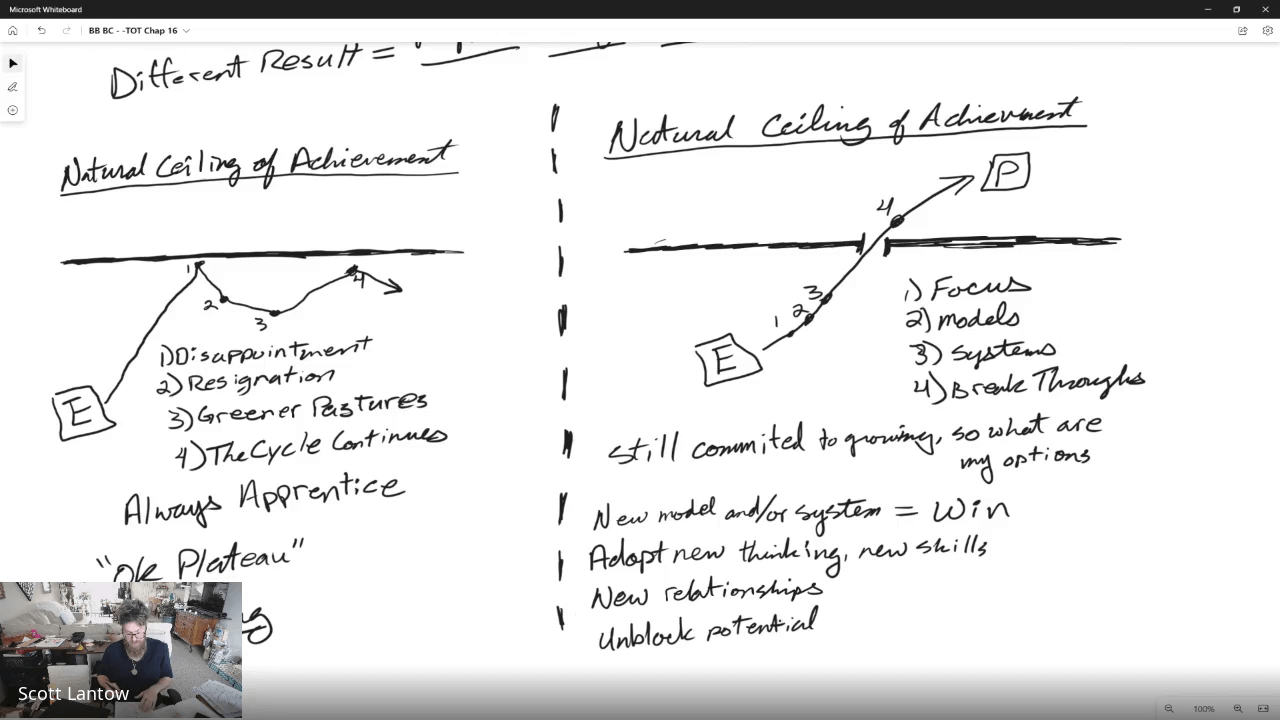 Microsoft Whiteboard
BB BC - -TOT Chap 16
Different Result =
Natural Ceiling of Achievement
1
2
3
4
E
1) Disappointment
2) Resignation
3) Greener Pastures
4) The Cycle Continues
Always Apprentice
"Ok Plateau"
Natural Ceiling of Achievment
P
4
3
2
1
E
1) Focus
2) Models
3) Systems
4) Break Throughs
Still commited to growing, so what are
my options
New model and/or system = Win
Adopt new thinking, new skills
New relationships
Unblock potential
Scott Lantow
100%